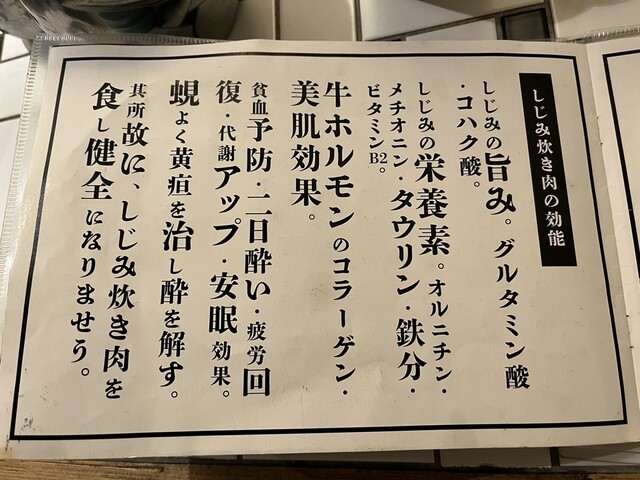 しじみ炊き肉の効能
しじみの旨み。グルタミン酸
・コハク酸。
しじみの栄養素。オルニチン・
メチオニン・タウリン・鉄分・
ビタミンB2。
牛ホルモンのコラーゲン・
美肌効果。
貧血予防・二日酔い・疲労回
復・代謝アップ・安眠効果。
蜆よく黄疸を治し酔を解す。
其所故に、しじみ炊き肉を
食し健全になりませう。